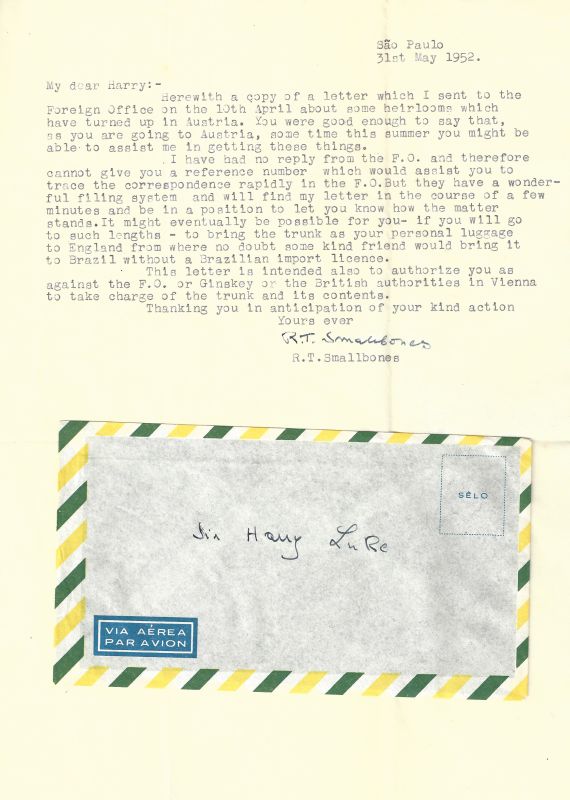 São Paulo
31st May 1952.
My dear Harry:-
Herewith a copy of a letter which I sent to the
Foreign Office on the 10th April about some heirlooms which
have turned up in Austria. You were good enough to say that,
as you are going to Austria, some time this summer you might be
able to assist me in getting these things.
I have had no reply from the F.O. and therefore
cannot give you a reference number which would assist you to
trace the correspondence rapidly in the F.O.But they have a wonder-
ful filing system and will find my letter in the course of a few
minutes and be in a position to let you know how the matter
stands.It might eventually be possible for you- if you will go
to such lengths - to bring the trunk as your personal luggage
to England from where no doubt some kind friend would bring it
to Brazil without a Brazilian import licence.
This letter is intended also to authorize you as
against the F.O. or Ginskey or the British authorities in Vienna
to take charge of the trunk and its contents.
Thanking you in anticipation of your kind action
Yours ever
R.T. Smallbones
R.T.Smallbones
SÊLO
Sir Harry Luke
VIA AÉREA
PAR AVION